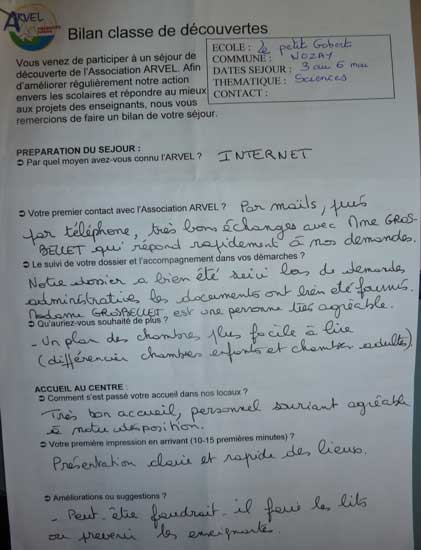 ARVEL
Bilan classe de découvertes
Vous venez de participer à un séjour de
découverte de l'Association ARVEL. Afin
d'améliorer régulièrement notre action
envers les scolaires et répondre au mieux
aux projets des enseignants, nous vous
remercions de faire un bilan de votre séjour.
ECOLE : le petit Gobert
COMMUNE : NOZAY
DATES SEJOUR : 3 au 6 mai
THEMATIQUE : Sciences
CONTACT :
PREPARATION DU SEJOUR :
➲ Par quel moyen avez-vous connu l'ARVEL ? INTERNET
➲ Votre premier contact avec l'Association ARVEL ? Par mails, puis
par téléphone, très bons échanges avec Mme GROS-
BELLET qui répond rapidement à nos demandes.
➲ Le suivi de votre dossier et l'accompagnement dans vos démarches ?
Notre dossier a bien été suivi lors de demandes
administratives les documents ont bien été fournis.
Madame GROSBELLET est une personne très agréable.
➲ Qu'auriez-vous souhaité de plus ?
- Un plan des chambres plus facile à lire
(différencier chambres enfants et chambres adultes).
ACCUEIL AU CENTRE :
➲ Comment s'est passé votre accueil dans nos locaux ?
Très bon accueil, personnel souriant agréable
à notre disposition.
➲ Votre première impression en arrivant (10-15 premières minutes) ?
Présentation claire et rapide des lieux.
➲ Améliorations ou suggestions ?
- Peut-être faudrait-il faire les lits
ou prévenir les enseignantes.